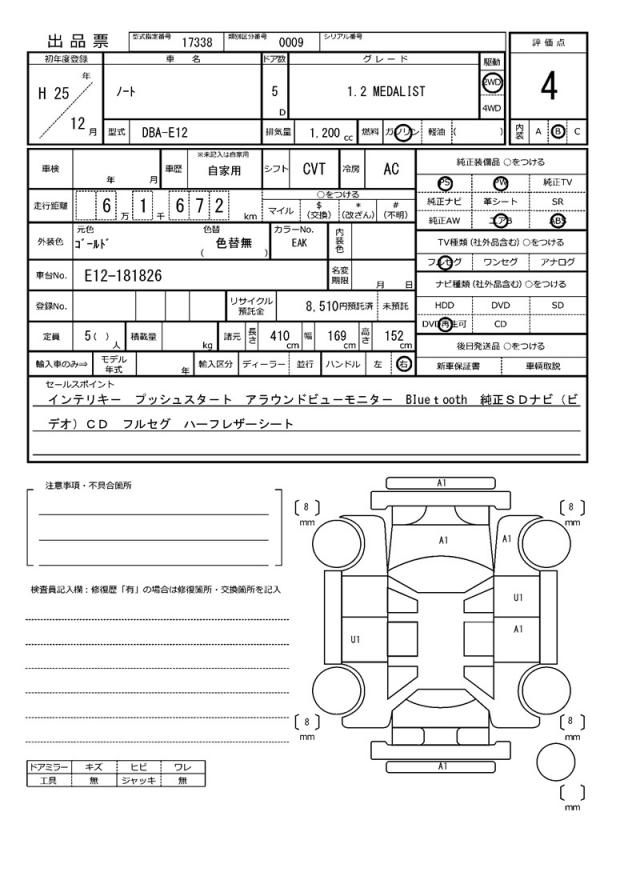 出品票 型式指定番号 17338 類別区分番号 0009 シリアル番号
評価点
初年度登録 車名 ドア数 グレード 駆動
H 25 年 ノート 5 D 1.2 MEDALIST 2WD 4WD 4
12 月 型式 DBA-E12 排気量 1,200 cc 燃料 ガソリン 軽油 ( ) 内装 A B C
車検 年 月 車歴 ※未記入は自家用 自家用 シフト CVT 冷房 AC
純正装備品 ○をつける
PS PW 純正TV
走行距離 6 万 1 千 6 7 2 km ○をつける
マイル $(交換) *(改ざん) #(不明)
純正ナビ 革シート SR
純正AW エアB ABS
外装色 元色 ゴールド 色替 ( 色替無 ) カラーNo. EAK 内装色
TV種類(社外品含む)○をつける
フルセグ ワンセグ アナログ
車台No. E12-181826 名変期限 月 日
ナビ種類(社外品含む)○をつける
登録No. リサイクル預託金 8,510円預託済 未預託
HDD DVD SD
DVD再生可 CD
定員 5( )人 積載量 kg 諸元 長さ 410 cm 幅 169 cm 高さ 152 cm
後日発送品 ○をつける
輸入車のみ⇒ モデル年式 年 輸入区分 ディーラー 並行 ハンドル 左 右
新車保証書 車輌取説
セールスポイント
インテリキー プッシュスタート アラウンドビューモニター Bluetooth 純正SDナビ(ビ
デオ)CD フルセグ ハーフレザーシート
注意事項・不具合箇所
検査員記入欄:修復歴「有」の場合は修復箇所・交換箇所を記入
A1
8 mm
8 mm
A1
A1
U1
U1
A1
8 mm
8 mm
A1
mm
ドアミラー キズ ヒビ ワレ
工具 無 ジャッキ 無